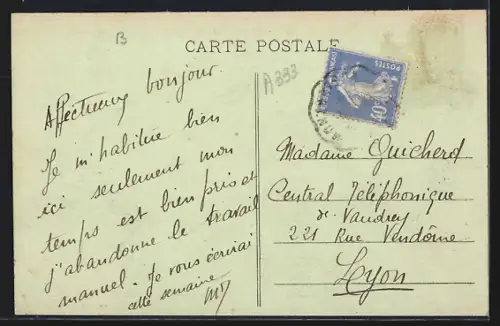 B
CARTE POSTALE
A333
POSTES
40c
Affectueux bonjour
Je m'habitue bien
ici seulement mon
temps est bien pris et
j'abandonne le travail
manuel. Je vous écrirai
cette semaine
Madame Guicherd
Central Téléphonique
de Vaudrey
221 Rue Vendôme
Lyon